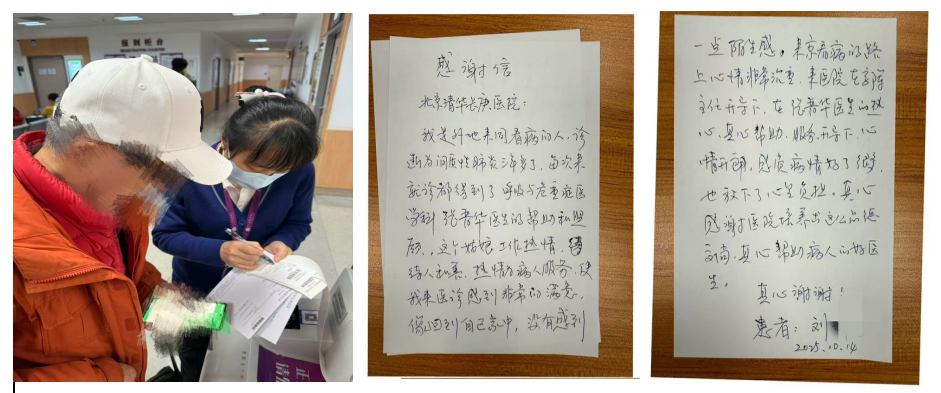 报到柜台
正
请
感谢信
北京清华长庚医院：
我是外地来问看病的人，诊
断为间质性肺炎三年多了，每次来
就诊都得到了呼吸与危重症医
学科 张春华医生的帮助和照
顾，这个姑娘工作热情，
待人和蔼，热情为病人服务，使
我来医诊感到非常的满意，
像回到自己家中，没有感到
一点陌生感，来京看病的路
上心情非常沉重，来医院在
主任开导下，在张春华医生的热
心，真心帮助、服务、开导下，心
情开朗，感觉病情好了很多
也放下了心里负担。真心
感谢医院培养出这么品德
高尚，真心帮助病人的好医
生。
真心谢谢！
患者：刘
2025.10.14